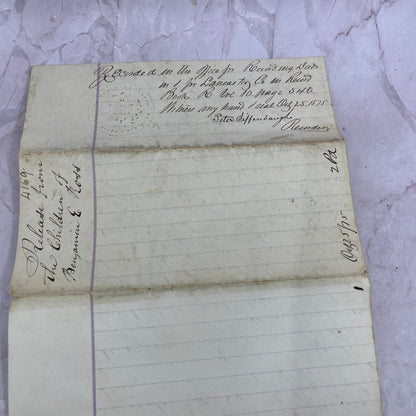 Recorded in the office for Recording Deeds
in & for Lancaster Co in Record
Book K Vol 10 page 540
Witness my hand & seal Oct 25. 1875
Peter Diffenbaugh
Recorder
4169
Release from
the Children of
Benjamin E Ross
Oct 25/75